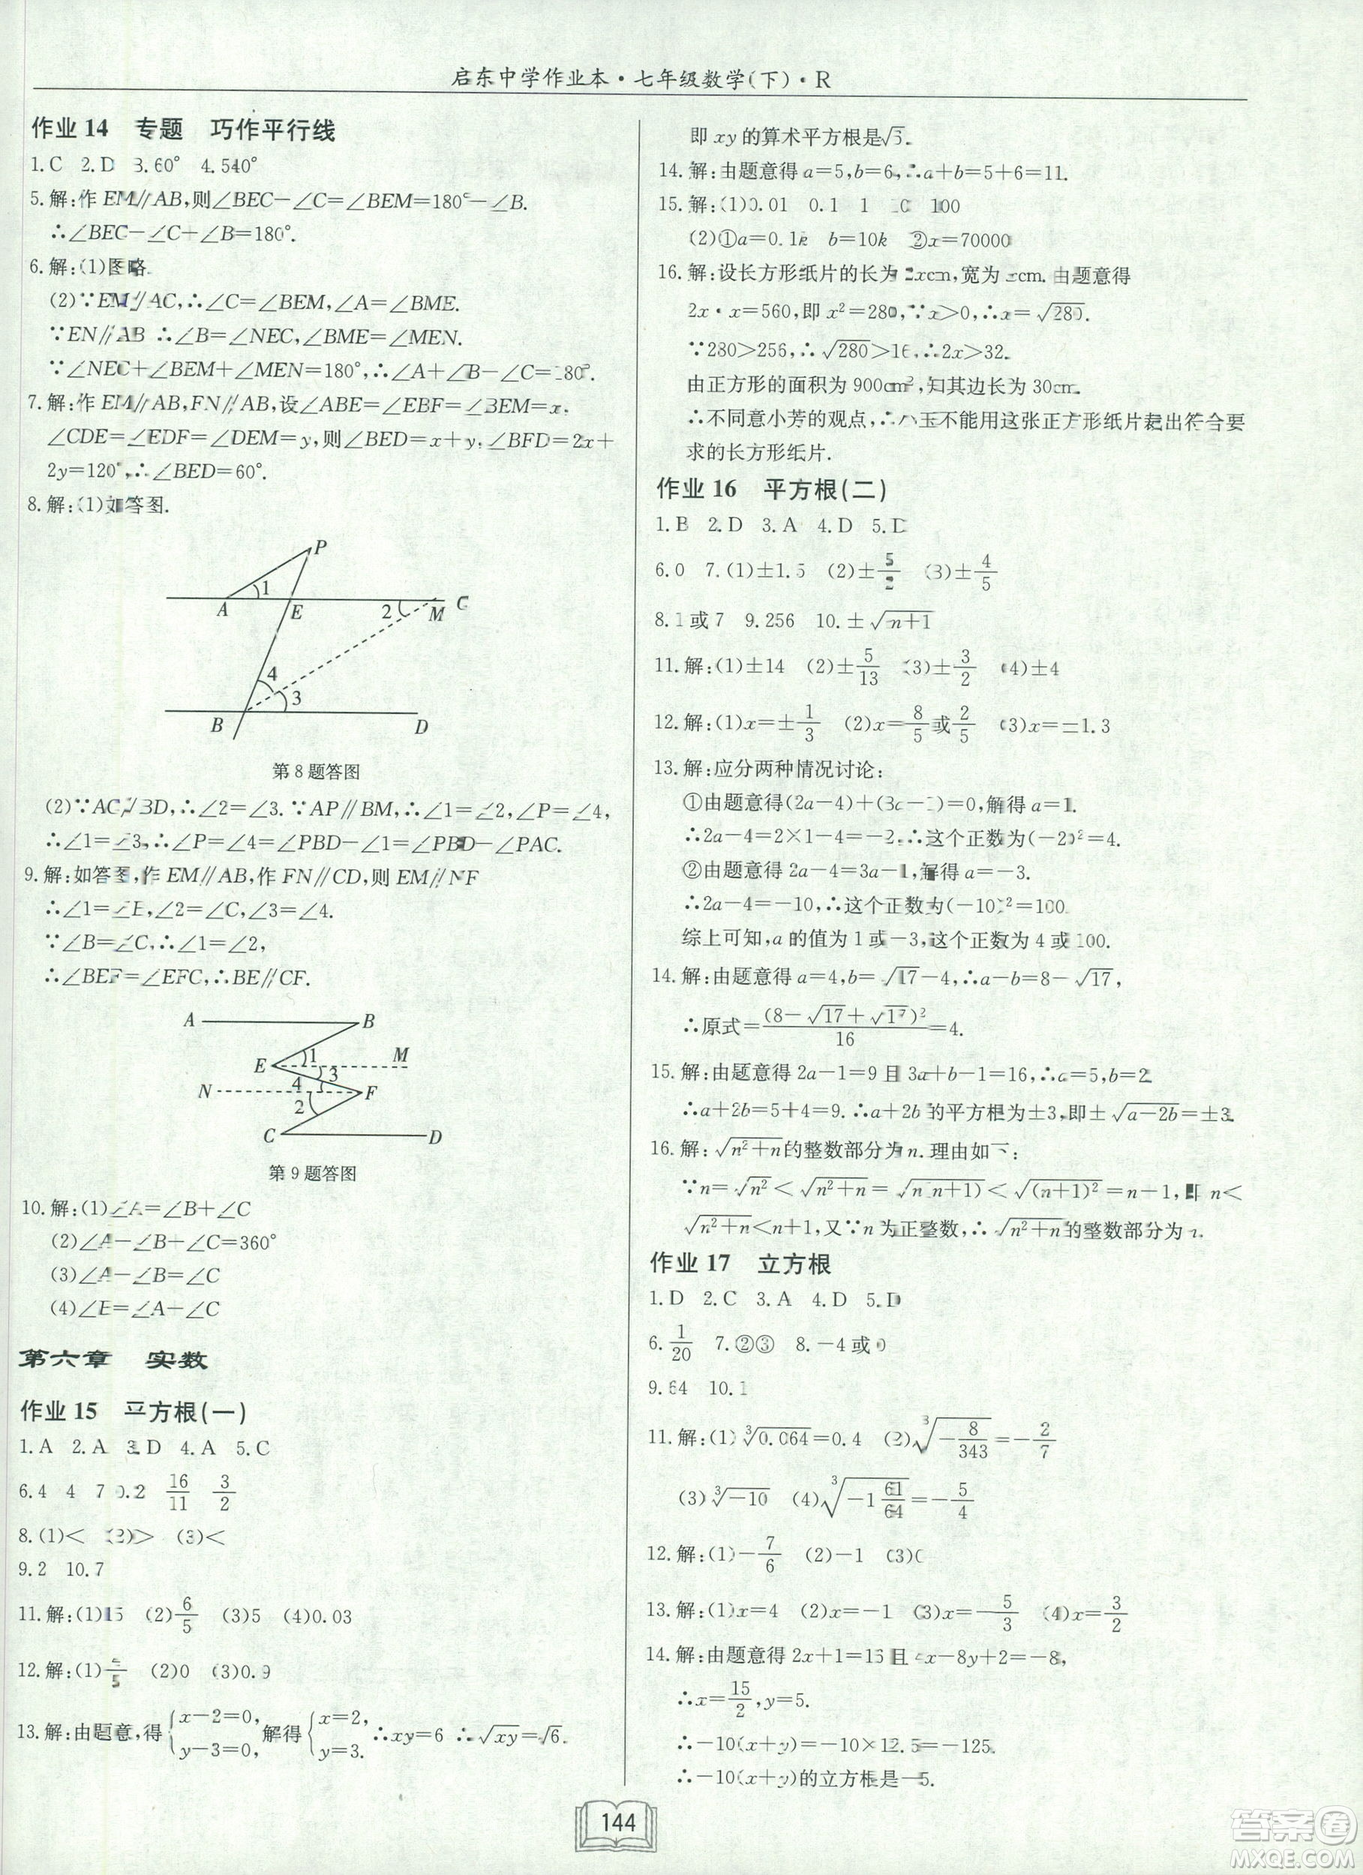 启东中学作业本·七年级数学(下)·R
作业14 专题 巧作平行线
1.C 2.D 3.60° 4.540°
5.解:作EM∥AB,则∠BEC-∠C=∠BEM=180°-∠B.
∴∠BEC-∠C+∠B=180°.
6.解:(1)图略.
(2)∵EM∥AC,∴∠C=∠BEM,∠A=∠BME.
∵EN∥AB ∴∠B=∠NEC,∠BME=∠MEN.
∵∠NEC+∠BEM+∠MEN=180°,∴∠A+∠B+∠C=180°.
7.解:作EM∥AB,FN∥AB,设∠ABE=∠EBF=∠BEM=x,
∠CDE=∠EDF=∠DEM=y,则∠BED=x+y,∠BFD=2x+
2y=120°,∴∠BED=60°.
8.解:(1)如答图.
P
A 1 E 2 M C
4
3
B D
第8题答图
(2)∵AC∥BD,∴∠2=∠3.∵AP∥BM,∴∠1=∠2,∠P=∠4,
∴∠1=∠3,∴∠P=∠4=∠PBD-∠1=∠PBD-∠PAC.
9.解:如答图,作EM∥AB,作FN∥CD,则EM∥NF
∴∠1=∠E,∠2=∠C,∠3=∠4.
∵∠B=∠C,∴∠1=∠2,
∴∠BEF=∠EFC,∴BE∥CF.
A B
E 1 M
3
N 4 F
2
C D
第9题答图
10.解:(1)∠A=∠B+∠C
(2)∠A-∠B+∠C=360°
(3)∠A-∠B=∠C
(4)∠E=∠A-∠C
第六章 实数
作业15 平方根(一)
1.A 2.A 3.D 4.A 5.C
6.4 4 7.0.2 16/11 3/2
8.(1)< (2)> (3)<
9.2 10.7
11.解:(1)15 (2)6/5 (3)5 (4)0.03
12.解:(1) /5 (2)0 (3)0.9
13.解:由题意,得{x-2=0, y-3=0. 解得{x=2, y=3. ∴xy=6 ∴√xy=√6.
即xy的算术平方根是√6.
14.解:由题意得a=5,b=6,∴a+b=5+6=11.
15.解:(1)0.01 0.1 1 10 100
(2)①a=0.1k b=10k ②x=70000
16.解:设长方形纸片的长为2xcm,宽为xcm.由题意得
2x·x=560,即x²=280,∵x>0,∴x=√280.
∵280>256,∴√280>16,∴2x>32.
由正方形的面积为900cm²,知其边长为30cm.
∴不同意小芳的观点,∴小玉不能用这张正方形纸片裁出符合要
求的长方形纸片.
作业16 平方根(二)
1.B 2.D 3.A 4.D 5.D
6.0 7.(1)±1.5 (2)±5/2 (3)±4/5
8.1或7 9.256 10.±√n+1
11.解:(1)±14 (2)±5/13 (3)±3/2 (4)±4
12.解:(1)x=±1/3 (2)x=8/5或2/5 (3)x=±1.3
13.解:应分两种情况讨论:
①由题意得(2a-4)+(3a-1)=0,解得a=1.
∴2a-4=2×1-4=-2,∴这个正数为(-2)²=4.
②由题意得2a-4=3a-1,解得a=-3.
∴2a-4=-10,∴这个正数为(-10)²=100.
综上可知,a的值为1或-3,这个正数为4或100.
14.解:由题意得a=4,b=√17-4,∴a-b=8-√17,
∴原式=(8-√17+√17)²/16=4.
15.解:由题意得2a-1=9且3a+b-1=16,∴a=5,b=2
∴a+2b=5+4=9.∴a+2b的平方根为±3,即±√a-2b=±3.
16.解:√n²+n的整数部分为n.理由如下:
∵n=√n²<√n²+n=√n(n+1)<√(n+1)²=n+1,即n<
√n²+n<n+1,又∵n为正整数,∴√n²+n的整数部分为n.
作业17 立方根
1.D 2.C 3.A 4.D 5.D
6.1/20 7.②③ 8.-4或0
9.64 10.1
11.解:(1)∛0.064=0.4 (2)∛-8/343=-2/7
(3)∛-10 (4)∛-1 61/64=-5/4
12.解:(1)-7/6 (2)-1 (3)0
13.解:(1)x=4 (2)x=-1 (3)x=-5/3 (4)x=3/2
14.解:由题意得2x+1=16且4x-8y+2=-8,
∴x=15/2,y=5.
∴-10(x+y)=-10×12.5=-125.
∴-10(x+y)的立方根是-5.
144
答案圈
MXQE.COM